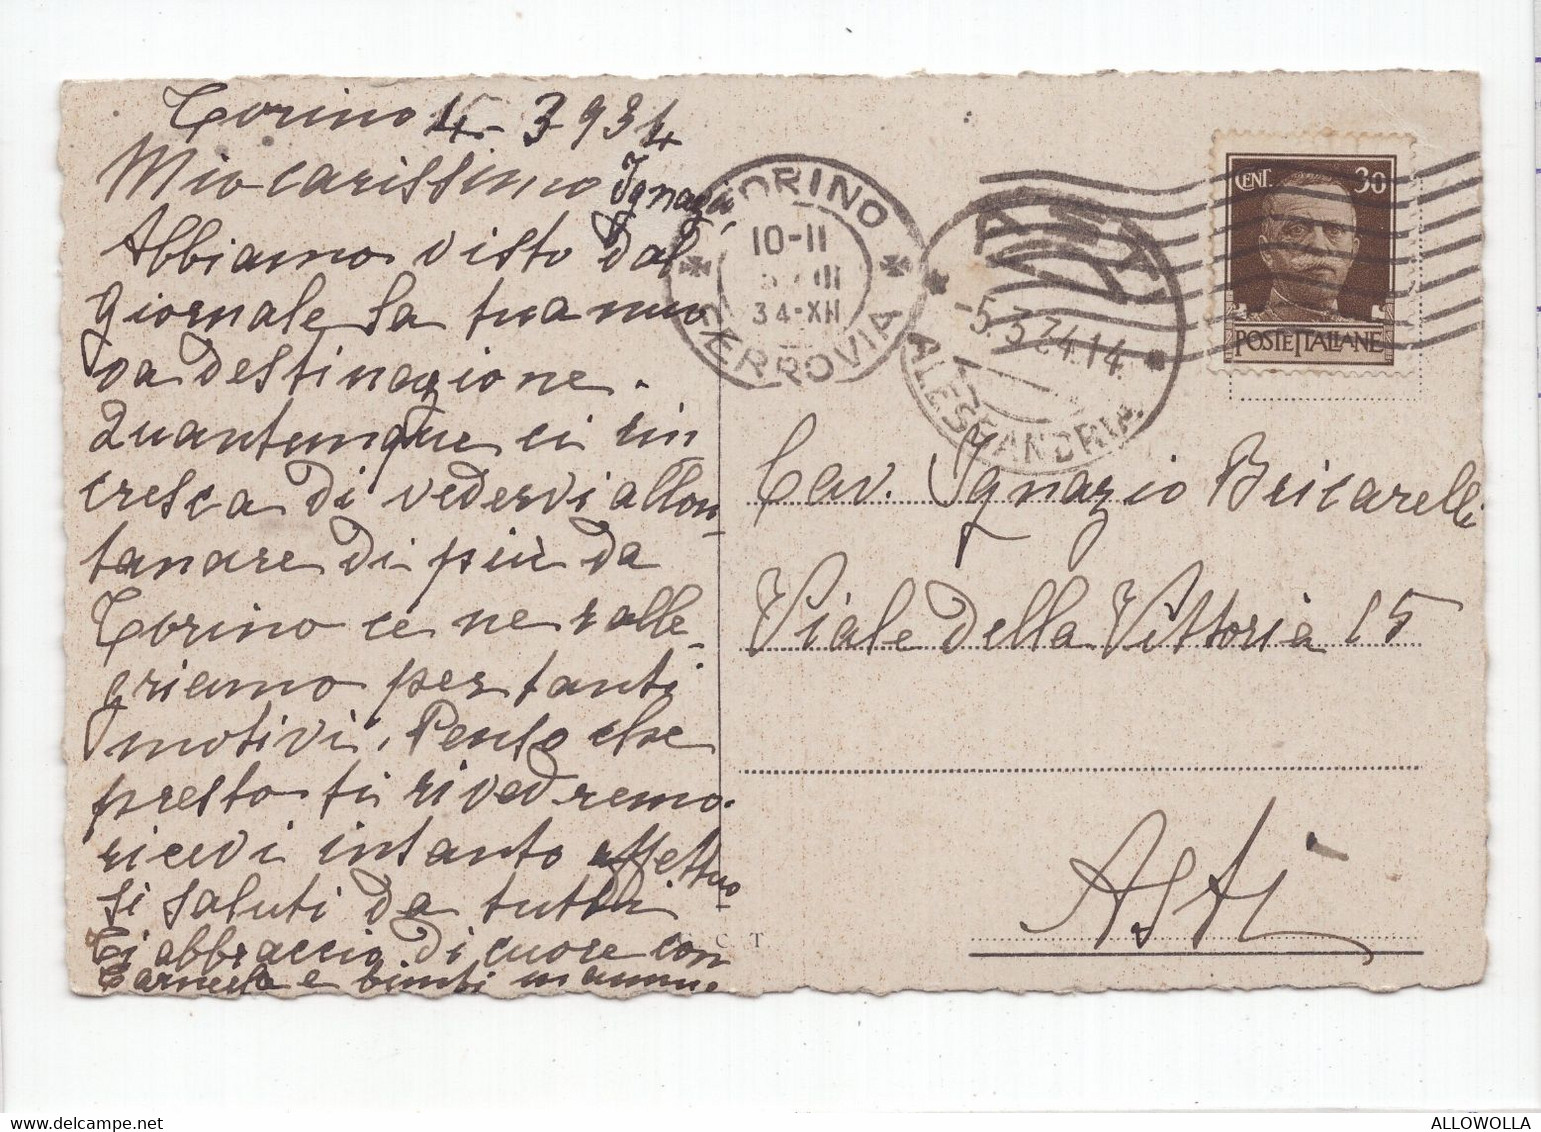 Torino 4-3-934
Mio carissimo Ignazio,
Abbiamo visto dal
giornale la tua nuo
va destinazione.
Quantunque ci rin
cresca di vedervi allon-
tanare di più da
Torino ce ne ralle-
griamo per tanti
motivi. Penso che
presto ti rivedremo.
ricevi intanto affettuo
si saluti da tutti
Ti abbraccio di cuore con
e bimbi
TORINO
10-11
34-XII
FERROVIA
ASTI
-5.3.34.14
ALESSANDRIA
CENT. 30
POSTE ITALIANE
Cav. Ignazio Bricarelli
Viale della Vittoria 15
Asti
C T
ALLOWOLLA